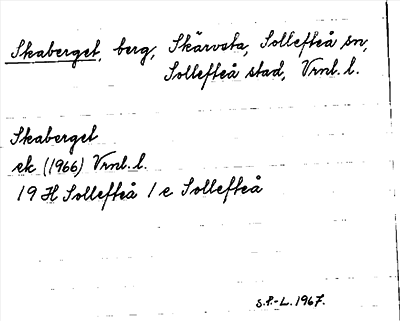 Skaberget, berg, Skärvsta, Sollefteå sn,
Sollefteå stad, Vrnl. l.
Skaberget
ek (1966) Vrnl. l.
19 H Sollefteå 1 e Sollefteå
S.F.-L. 1967.